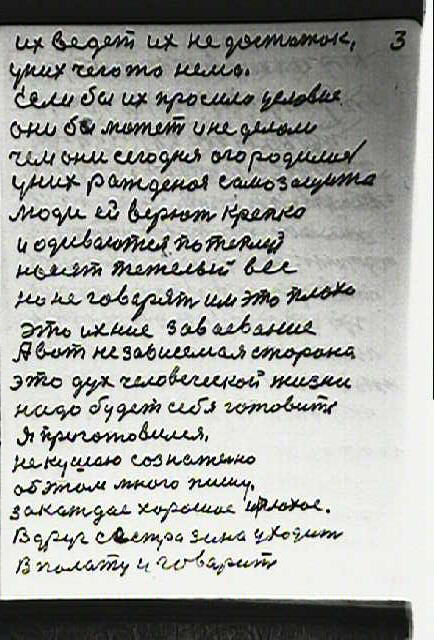 их ведет их не достаток, 3
у них чегото нема.
если бы их просило условие
они бы может и не делали
чем они сегодня огородились
у них рожденоя самозащита
люди ей верют крепко
и одиваются потеплу
носят тяжелый вес
но не говарят им это плохо
это ихние заваевание
А вот независемая сторона
это дух человеческой жизни
надо будет себя готовить
я приготовился.
не кушаю сознательно
об этом много пишу.
за каждае хорошое и плохое.
Вдруг сестра зина уходит
в полату и говарит